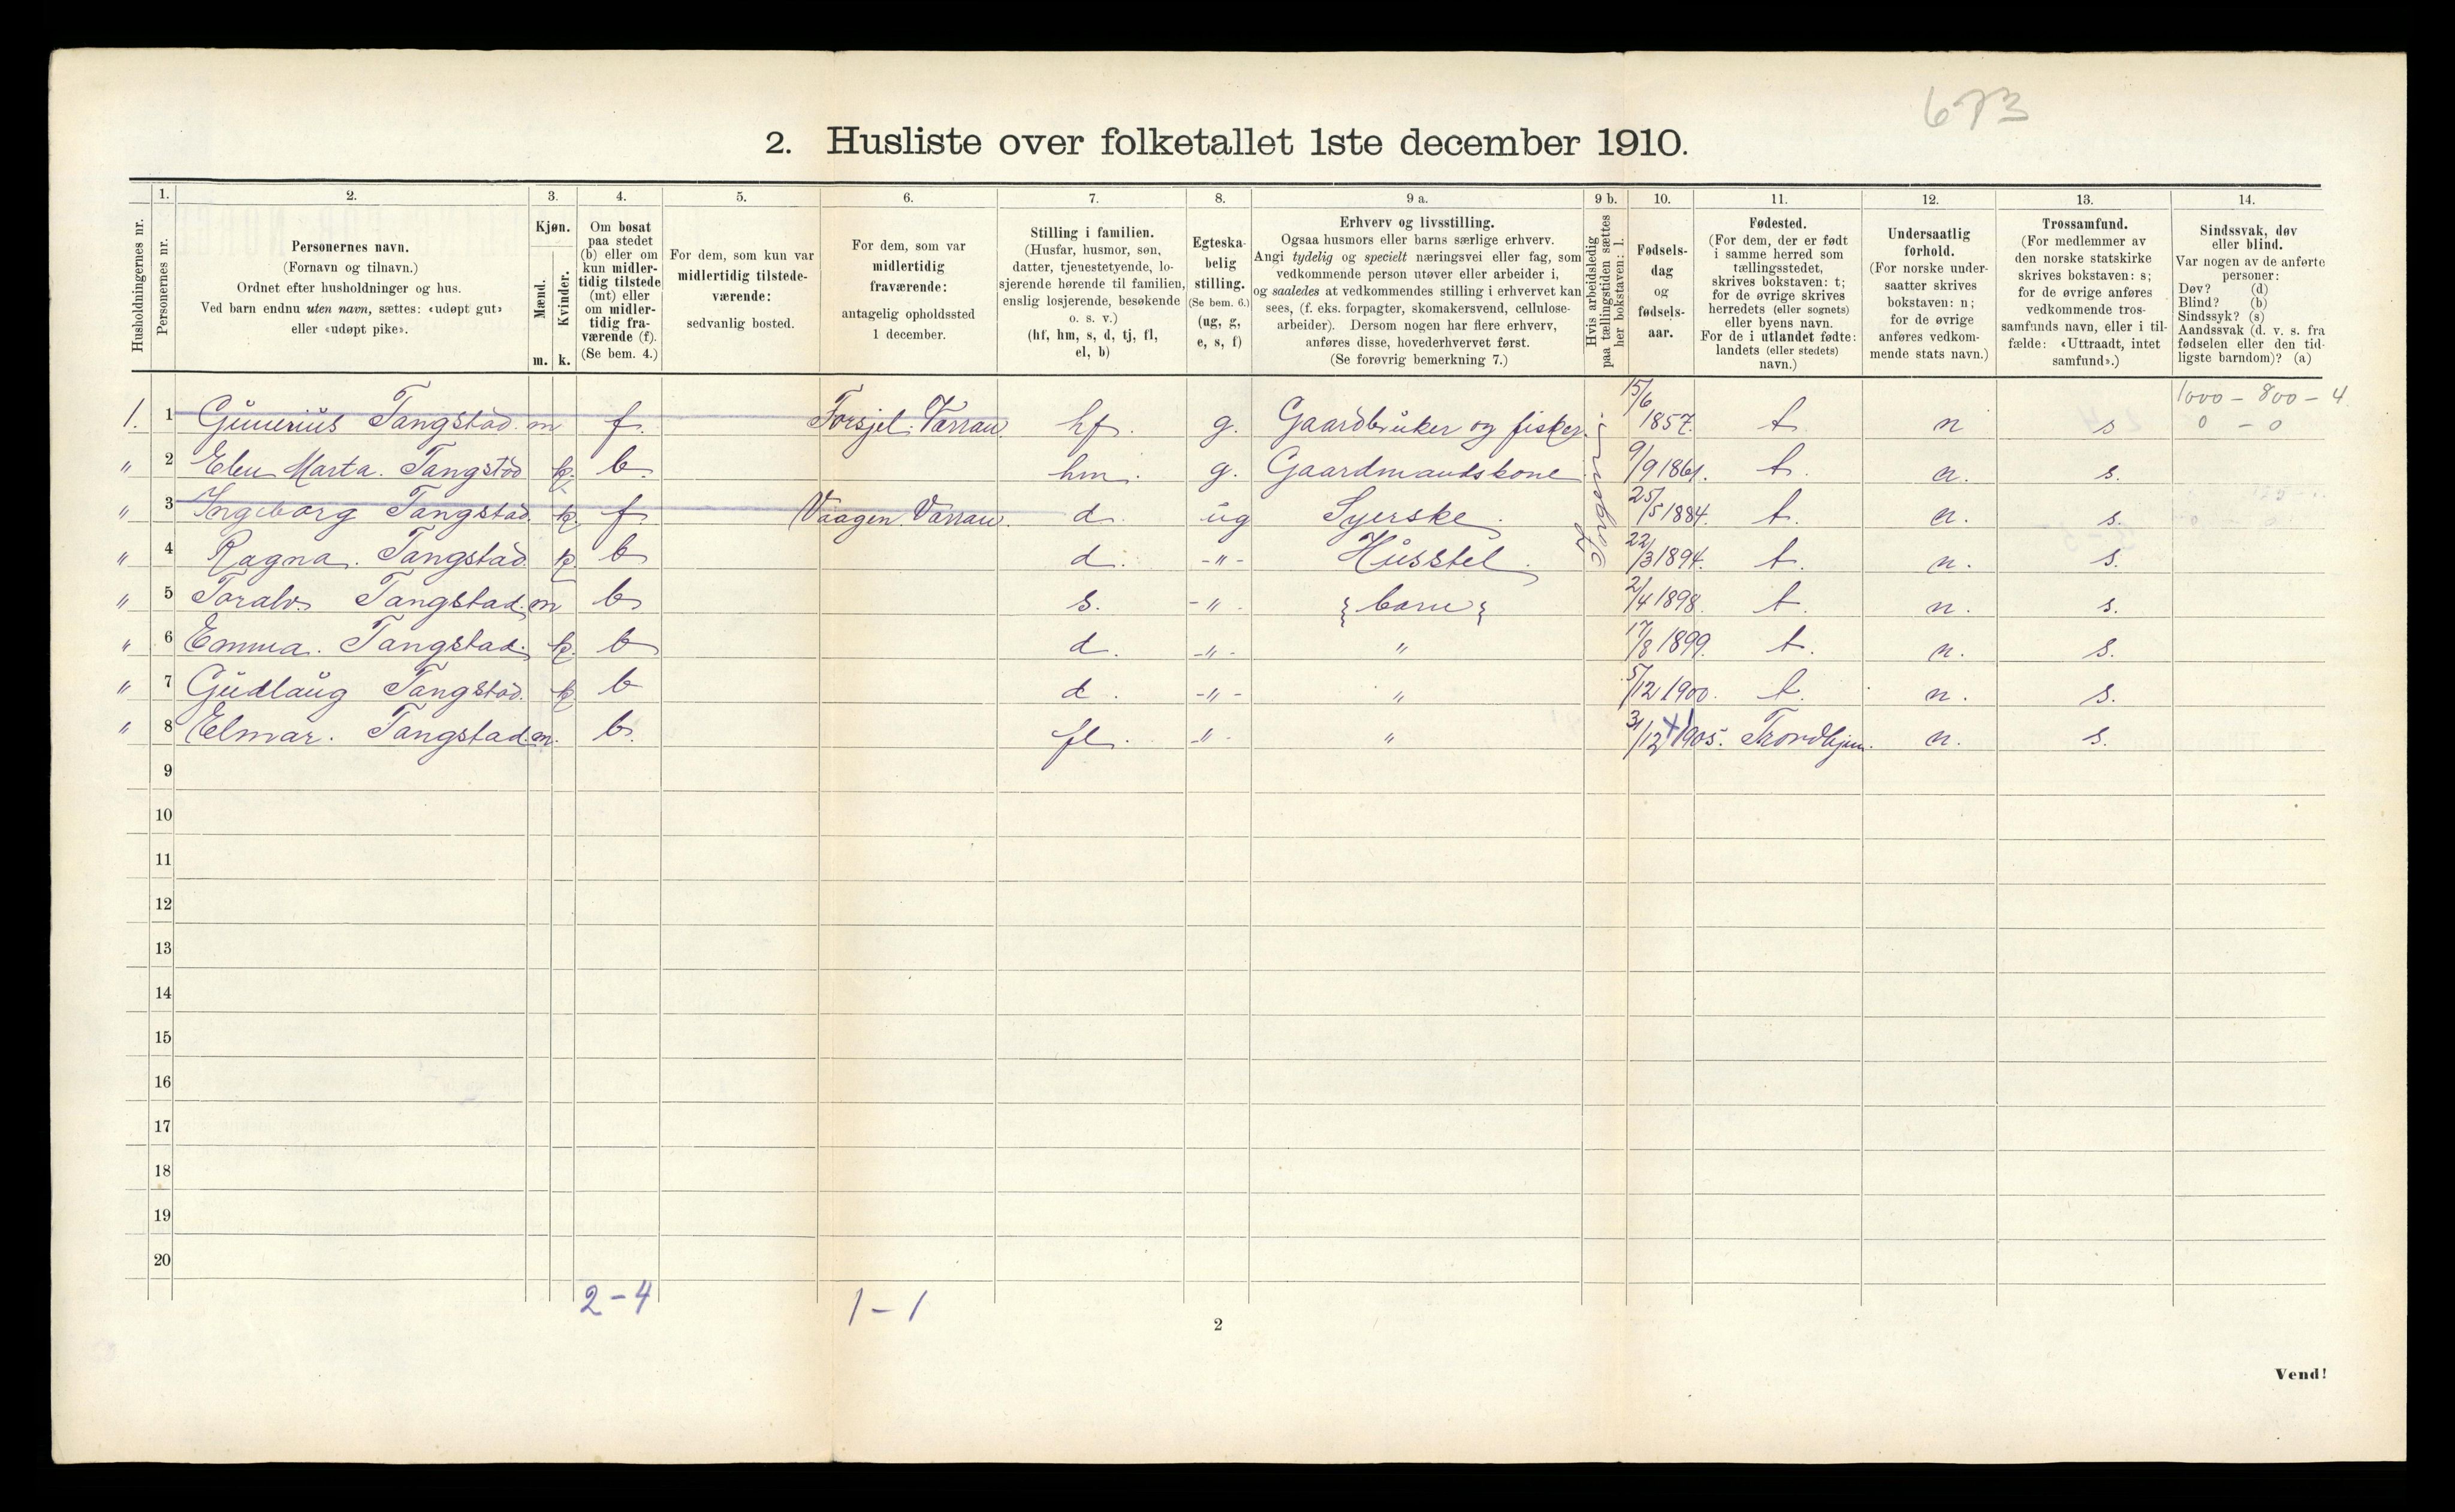 673
2. Husliste over folketallet 1ste december 1910.
Husholdningernes nr.
1.
Personernes nr.
2.
Personernes navn.
(Fornavn og tilnavn.)
Ordnet efter husholdninger og hus.
Ved barn endnu uten navn, sættes: «udøpt gut»
eller «udøpt pike».
3.
Kjøn.
Mænd.
Kvinder.
m. k.
4.
Om bosat
paa stedet
(b) eller om
kun midler-
tidig tilstede
(mt) eller
om midler-
tidig fra-
værende (f).
(Se bem. 4.)
5.
For dem, som kun var
midlertidig tilstede-
værende:
sedvanlig bosted.
6.
For dem, som var
midlertidig
fraværende:
antagelig opholdssted
1 december.
7.
Stilling i familien.
(Husfar, husmor, søn,
datter, tjenestetyende, lo-
sjerende hørende til familien,
enslig losjerende, besøkende
o. s. v.)
(hf, hm, s, d, tj, fl,
el, b)
8.
Egteska-
belig
stilling.
(Se bem. 6.)
(ug, g,
e, s, f)
9 a.
Erhverv og livsstilling.
Ogsaa husmors eller barns særlige erhverv.
Angi tydelig og specielt næringsvei eller fag, som
vedkommende person utøver eller arbeider i,
og saaledes at vedkommendes stilling i erhvervet kan
sees, (f. eks. forpagter, skomakersvend, cellulose-
arbeider). Dersom nogen har flere erhverv,
anføres disse, hovederhvervet først.
(Se forøvrig bemerkning 7.)
9 b.
Hvis arbeidsledig
paa tællingstiden sættes
her bokstaven: l.
10.
Fødsels-
dag
og
fødsels-
aar.
11.
Fødested.
(For dem, der er født
i samme herred som
tællingsstedet,
skrives bokstaven: t;
for de øvrige skrives
herredets (eller sognets)
eller byens navn.
For de i utlandet fødte:
landets (eller stedets)
navn.)
12.
Undersaatlig
forhold.
(For norske under-
saatter skrives
bokstaven: n;
for de øvrige
anføres vedkom-
mende stats navn.)
13.
Trossamfund.
(For medlemmer av
den norske statskirke
skrives bokstaven: s;
for de øvrige anføres
vedkommende tros-
samfunds navn, eller i til-
fælde: «Uttraadt, intet
samfund».)
14.
Sindssvak, døv
eller blind.
Var nogen av de anførte
personer:
Døv? (d)
Blind? (b)
Sindssyk? (s)
Aandssvak (d. v. s. fra
fødselen eller den tid-
ligste barndom)? (a)
1000 - 800 - 4
0 - 0
1. 1 Gunerius Tangstad. m f. hf. g. Gaardbruker og fisker. 15/6 1857. t n s
" 2 Tangstad k. b. hm. g. Gaardmandskone 9/9 1861. t. n. s.
" 3 Ingeborg Tangstad. k. f Vaagen d. ug Syerske. 25/5 1884. t. n. s.
" 4 Ragna. Tangstad. k. b d. -"- Husstel. 22/3 1894. t. n. s.
" 5 Toralv. Tangstad. m b s. -"- {barn} 2/4 1898. t. n. s.
" 6 Emma. Tangstad. k. b d. -"- " 17/8 1899. t. n. s.
" 7 Gudlaug Tangstad. k. b d. -"- " 5/12 1900. t. n. s.
" 8 Elmar. Tangstad. m. b. fl. -"- " 31/12 1905. Trondhjem. n. s.
9
10
11
12
13
14
15
16
17
18
19
20
2-4 1-1
2
Vend!